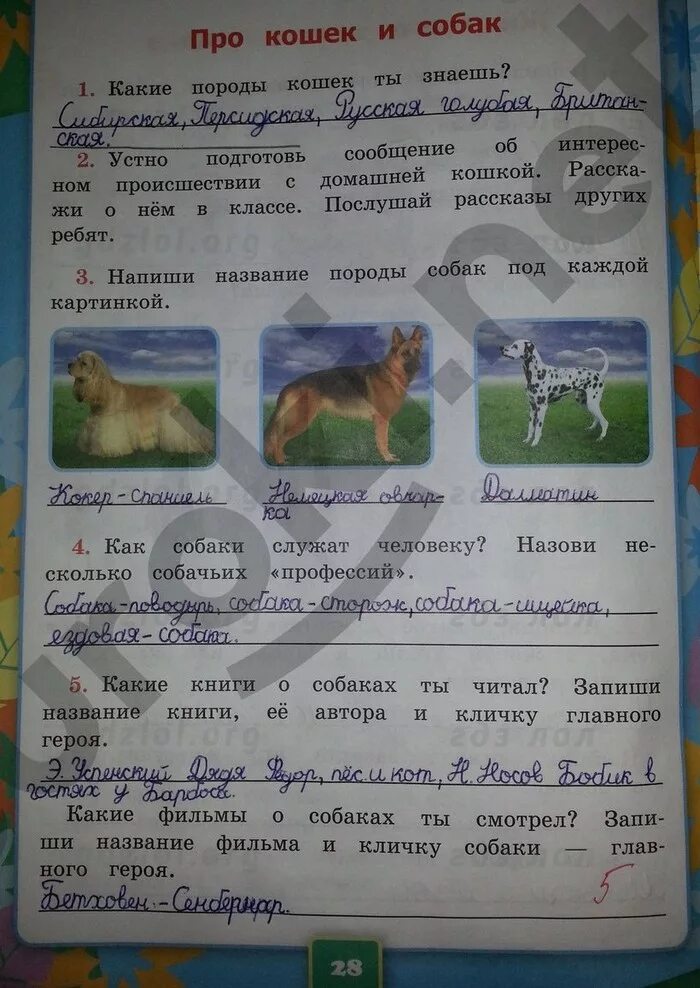 Про кошек и собак
1. Какие породы кошек ты знаешь?
Сибирская, Персидская, Русская голубая, Британ-
ская.
2. Устно подготовь сообщение об интерес-
ном происшествии с домашней кошкой. Расска-
жи о нём в классе. Послушай рассказы других
ребят.
3. Напиши название породы собак под каждой
картинкой.
Кокер-спаниель Немецкая овчар- Далматин
ка
4. Как собаки служат человеку? Назови не-
сколько собачьих «профессий».
Собака-поводырь, собака-сторож, собака-ищейка,
ездовая-собака.
5. Какие книги о собаках ты читал? Запиши
название книги, её автора и кличку главного
героя.
Э. Успенский Дядя Фёдор, пёс и кот, Н. Носов Бобик в
гостях у Барбоса.
Какие фильмы о собаках ты смотрел? Запи-
ши название фильма и кличку собаки — глав-
ного героя.
Бетховен.-Сенбернар.
5
28